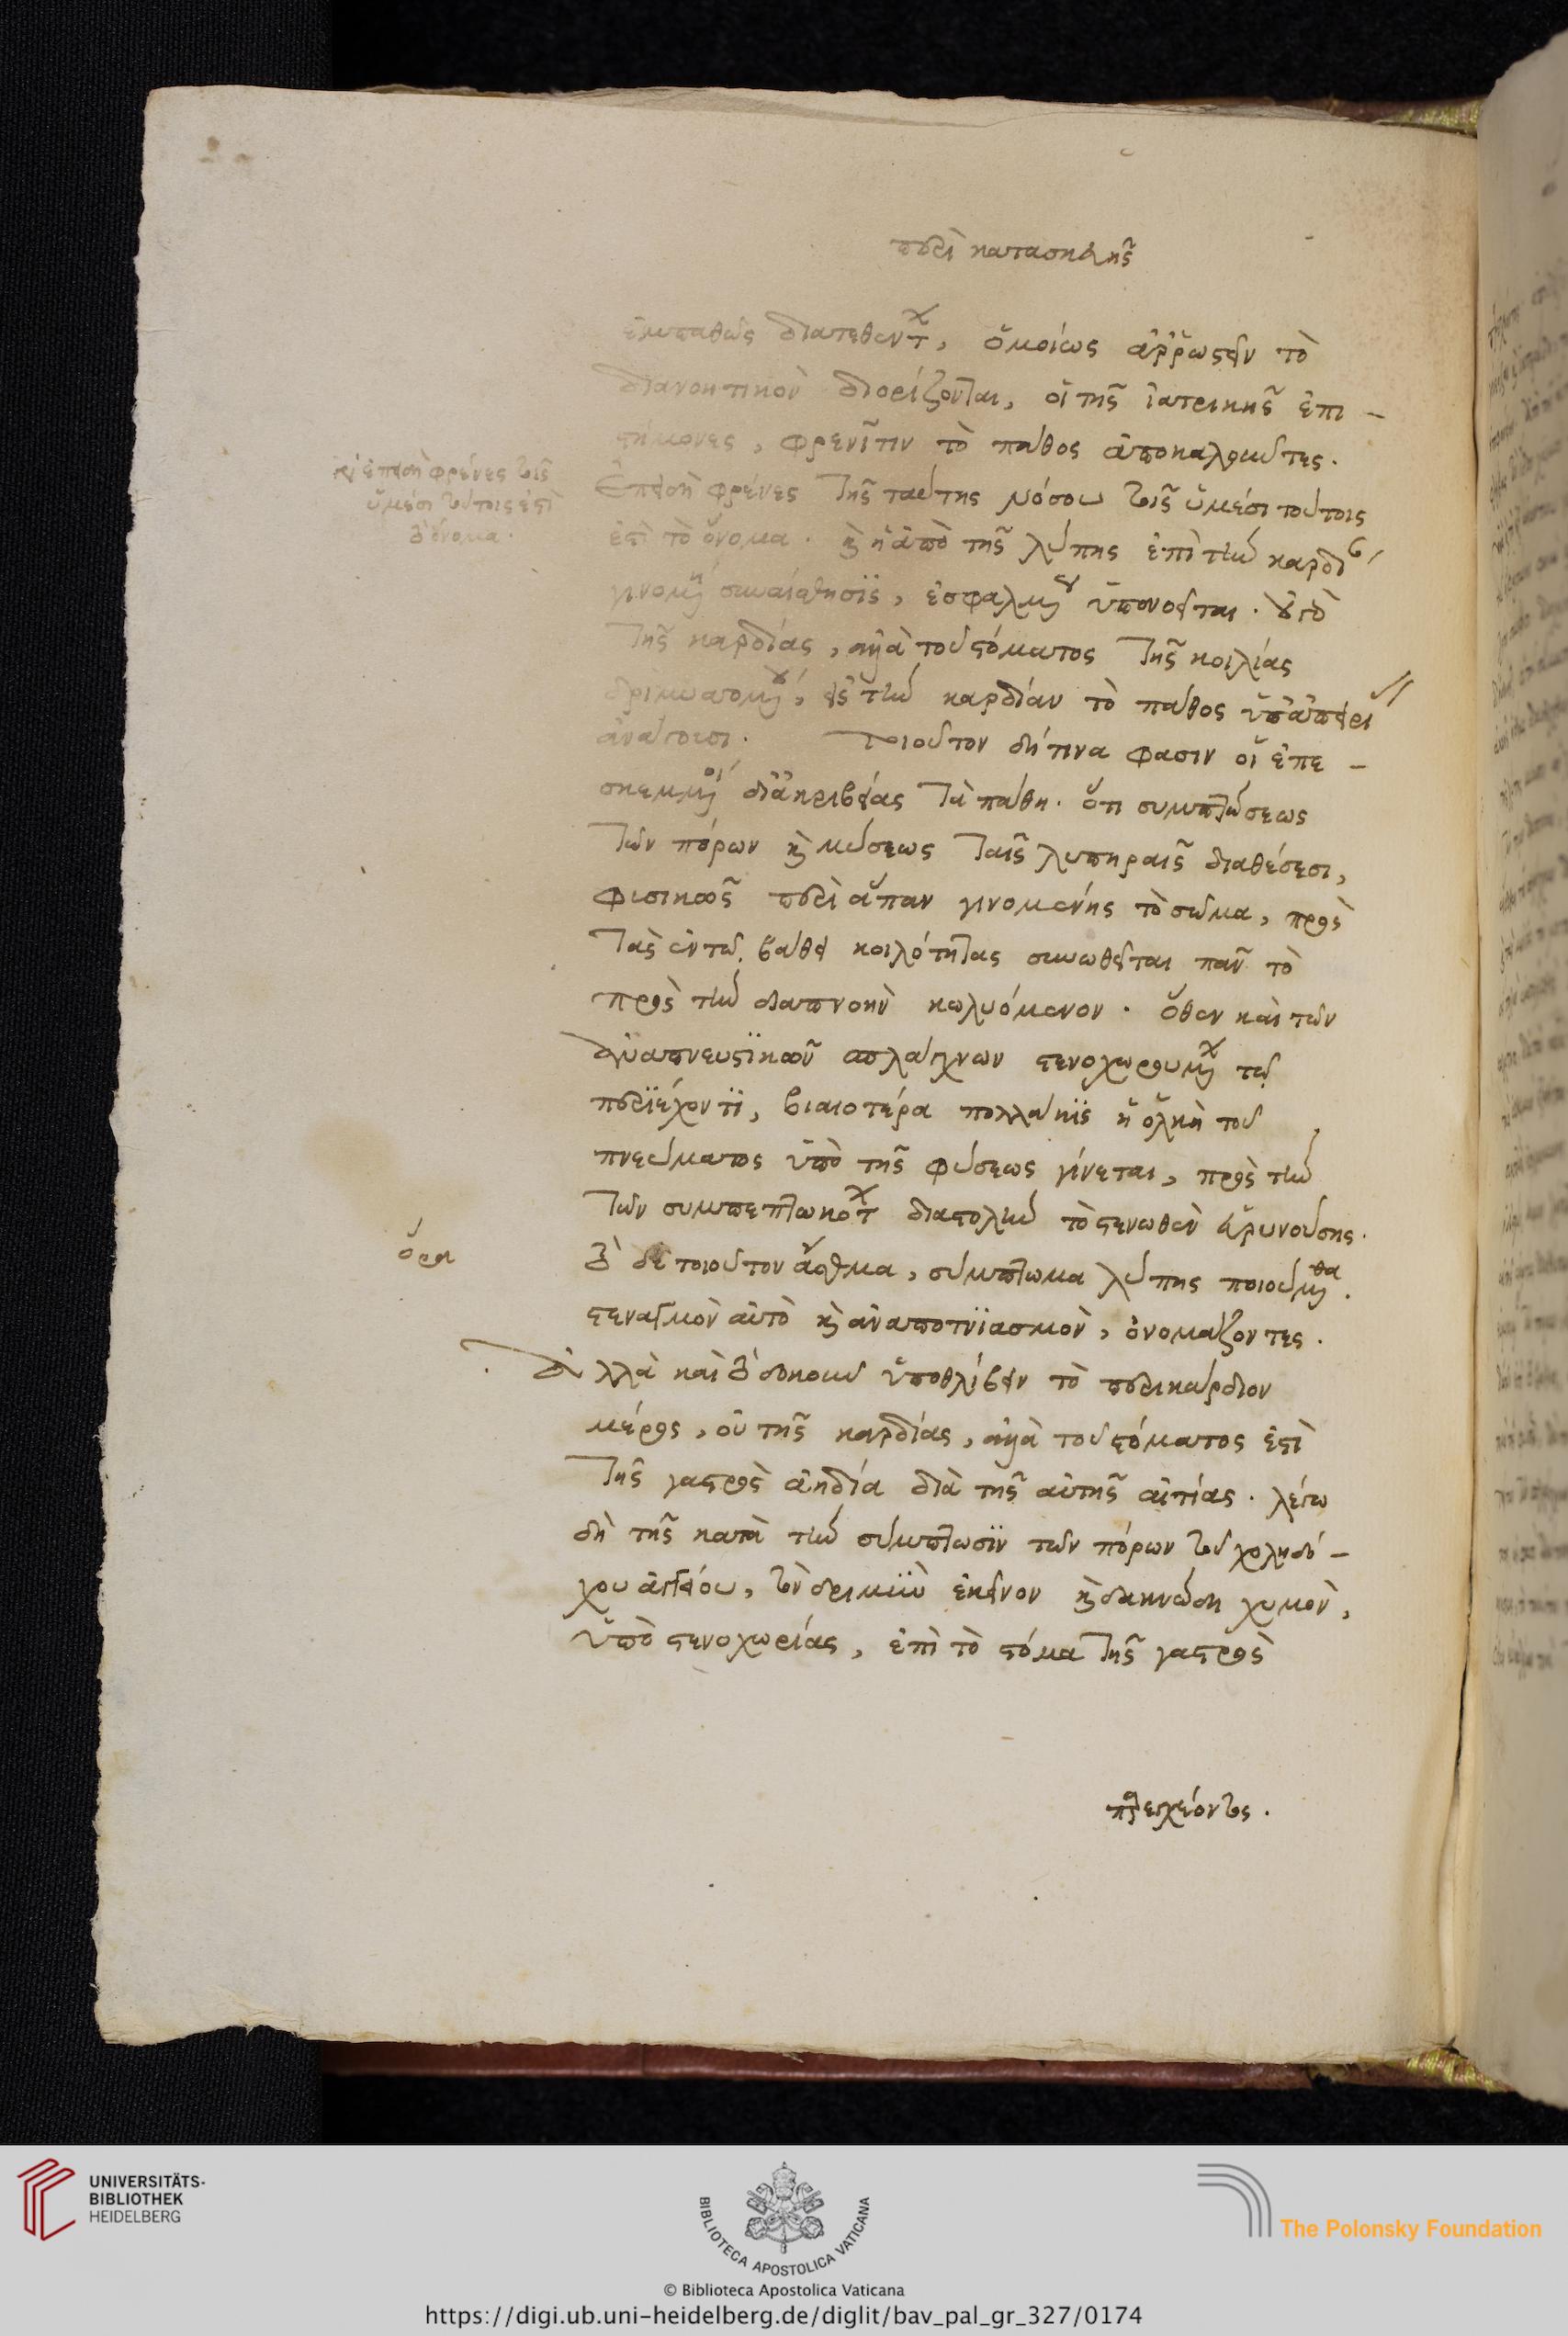 περὶ κατασκευῆς
ἐμπαθῶς διατεθέντων, ὁμοίως ἀῤῥωστεῖν τὸ
διανοητικὸν διορίζονται, οἱ τῆς ἰατρικῆς ἐπι-
στήμονες, φρενῖτιν τὸ πάθος ἀποκαλοῦντες.
ἐπειδὴ φρένες τῆς ταύτης νόσου τοῖς ὑμέσι τούτοις
ἐστὶ τὸ ὄνομα. καὶ ἡ ἀπὸ τῆς λύπης ἐπὶ τὴν καρδίαν
γινομένη συναίσθησις, ἐσφαλμένως ὑπονοεῖται. οὐ γὰρ
τῆς καρδίας, ἀλλὰ τοῦ στόματος τῆς κοιλίας
δριμυσσομένου, εἰς τὴν καρδίαν τὸ πάθος ὑπ᾽ ἀπειρίας
ἀνάγουσι. τοιοῦτον δή τινα φασιν οἱ ἐπε-
σκεμμένοι δι᾽ ἀκριβείας τὰ πάθη. ὅτι συμπτώσεως
τῶν πόρων καὶ μύσεως ταῖς λυπηραῖς διαθέσεσι,
φυσικῶς περὶ ἅπαν γινομένης τὸ σῶμα, πρὸς
τὰς ἐν τῷ βάθει κοιλότητας συνωθεῖται πᾶν τὸ
πρὸς τὴν διαπνοὴν κωλυόμενον. ὅθεν καὶ τῶν
ἀναπνευστικῶν σπλάγχνων στενοχωρουμένων τῷ
περιέχοντι, βιαιοτέρα πολλάκις ἡ ὁλκὴ τοῦ
πνεύματος ὑπὸ τῆς φύσεως γίνεται, πρὸς τὴν
τῶν συμπεπτωκότων διαστολὴν τὸ στενωθὲν εὐρυνούσης.
ὅρα
τὸ δὲ τοιοῦτον ἆσθμα, σύμπτωμα λύπης ποιούμεθα.
στεναγμὸν αὐτὸ καὶ ἀναποτνιασμὸν, ὀνομάζοντες.
Ἀλλὰ καὶ τὸ δοκοῦν ὑποθλίβειν τὸ περικάρδιον
μέρος, οὐ τῆς καρδίας, ἀλλὰ τοῦ στόματος ἐστὶ
τῆς γαστρὸς ἀηδία διὰ τῆς αὐτῆς αἰτίας. λέγω
δὴ τῆς κατὰ τὴν σύμπτωσιν τῶν πόρων τοῦ χοληδό-
χου ἀγγείου, τὸν δριμὺν ἐκεῖνον καὶ δακνώδη χυμὸν,
ὑπὸ στενοχωρίας, ἐπὶ τὸ στόμα τῆς γαστρὸς
παρεγχέοντος.
UNIVERSITÄTS-
BIBLIOTHEK
HEIDELBERG
BIBLIOTECA APOSTOLICA VATICANA
The Polonsky Foundation
© Biblioteca Apostolica Vaticana
https://digi.ub.uni-heidelberg.de/diglit/bav_pal_gr_327/0174